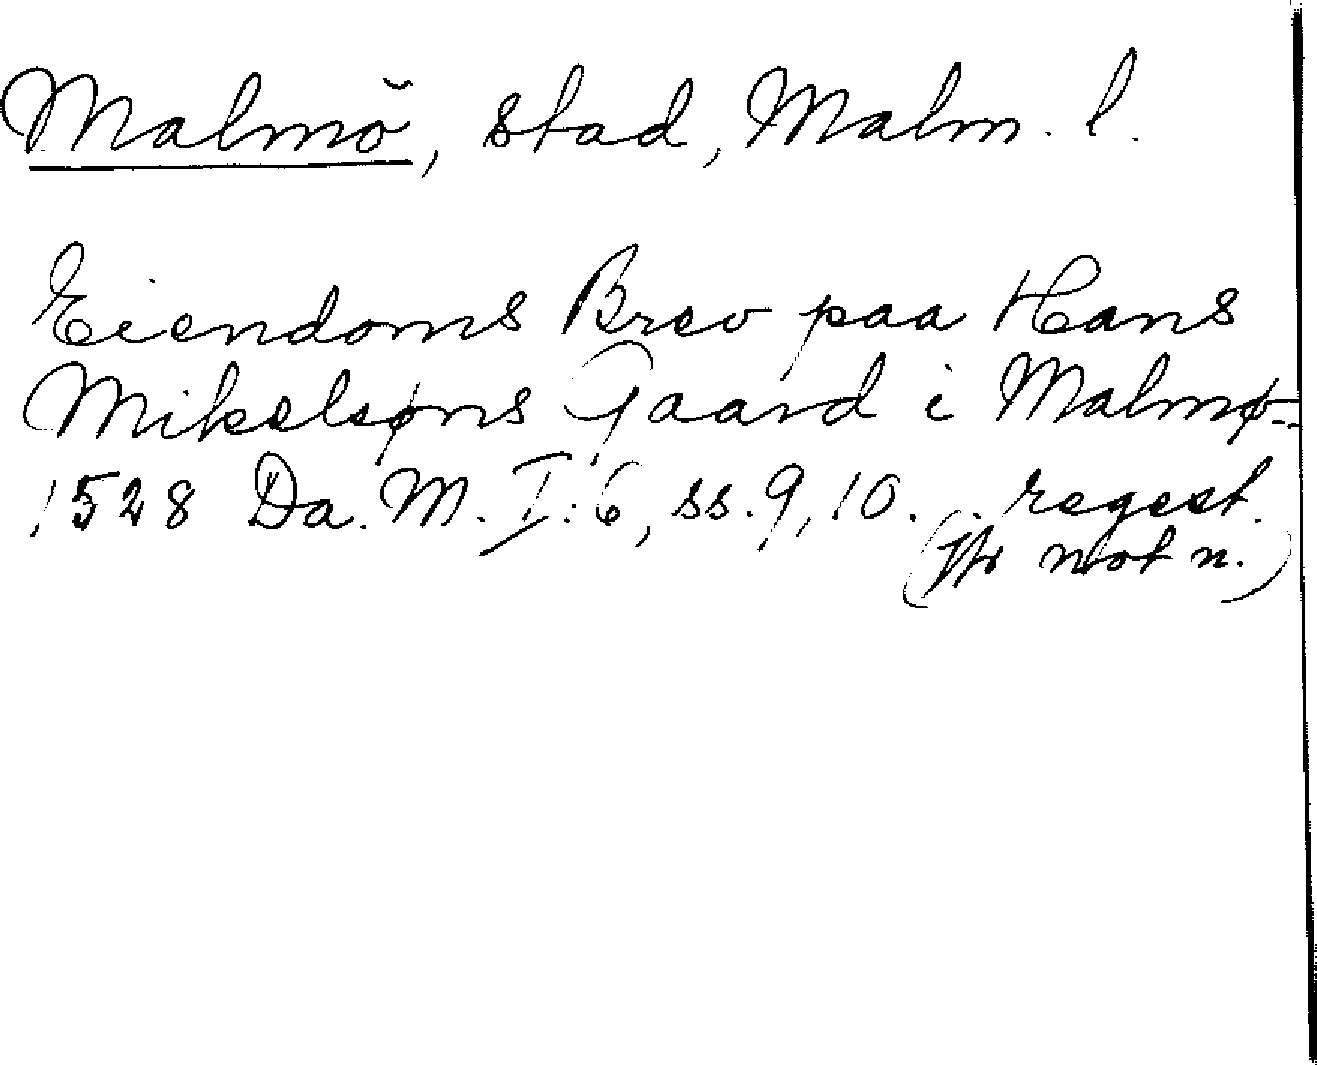 Malmö, stad, Malm. l.
Eiendoms Brev paa Hans
Mikelsøns Gaard i Malmø..
1528 Da. M. I: 6, ss. 9, 10. .. regest.
(Jfr not n.)